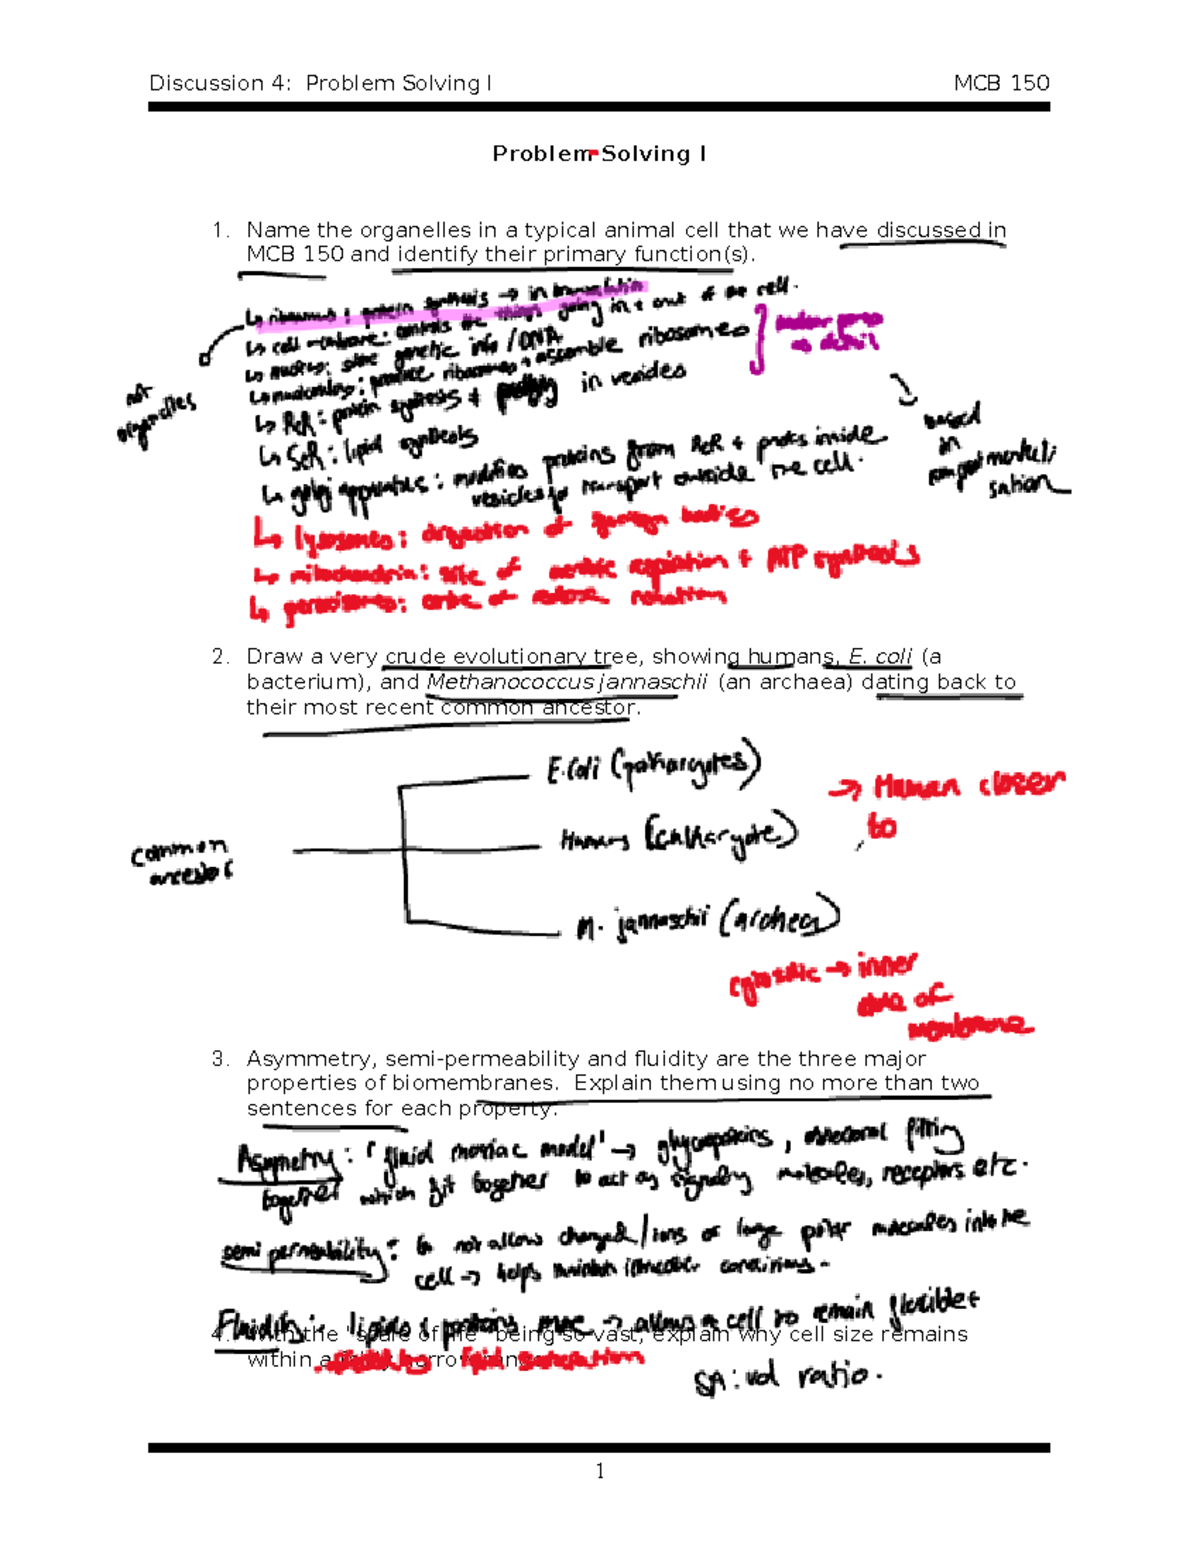 Discussion 4: Problem Solving I MCB 150
Problem Solving I
1. Name the organelles in a typical animal cell that we have discussed in
MCB 150 and identify their primary function(s).
↳ ribosomes : protein synthesis → in translation
↳ cell membrane: controls the things going in + out of the cell.
↳ nucleus: store genetic info / DNA
↳ nucleolus: produce ribosomes + assemble ribosomes
↳ RER: protein synthesis + in vesicles
↳ SER: lipid synthesis
↳ golgi apparatus: modifies proteins from RER + packs inside
vesicles for transport outside the cell.
not
organelles
based
in
compartmentali
sation
↳ lysosomes: digestion of foreign bodies
↳ mitochondria: site of aerobic respiration + ATP synthesis
↳ peroxisomes: of
2. Draw a very crude evolutionary tree, showing humans, E. coli (a
bacterium), and Methanococcus jannaschii (an archaea) dating back to
their most recent common ancestor.
E.Coli
→ Human closer
to
Humans
common
ancestor
M. jannaschii (archea)
cytosolic → inner
side of
membrane
3. Asymmetry, semi-permeability and fluidity are the three major
properties of biomembranes. Explain them using no more than two
sentences for each property.
Asymmetry: 'fluid mosiac model' → glycoproteins,
together which fit together to act as signaling molecules, receptors etc.
semi permeability: to not allow charged/ions or large polar molecules into the
cell → helps maintain conditions.
Fluidity: lipids & proteins move → allows a cell to remain flexible
4. With the "scale of life" being so vast, explain why cell size remains
within a
SA:vol ratio.
1